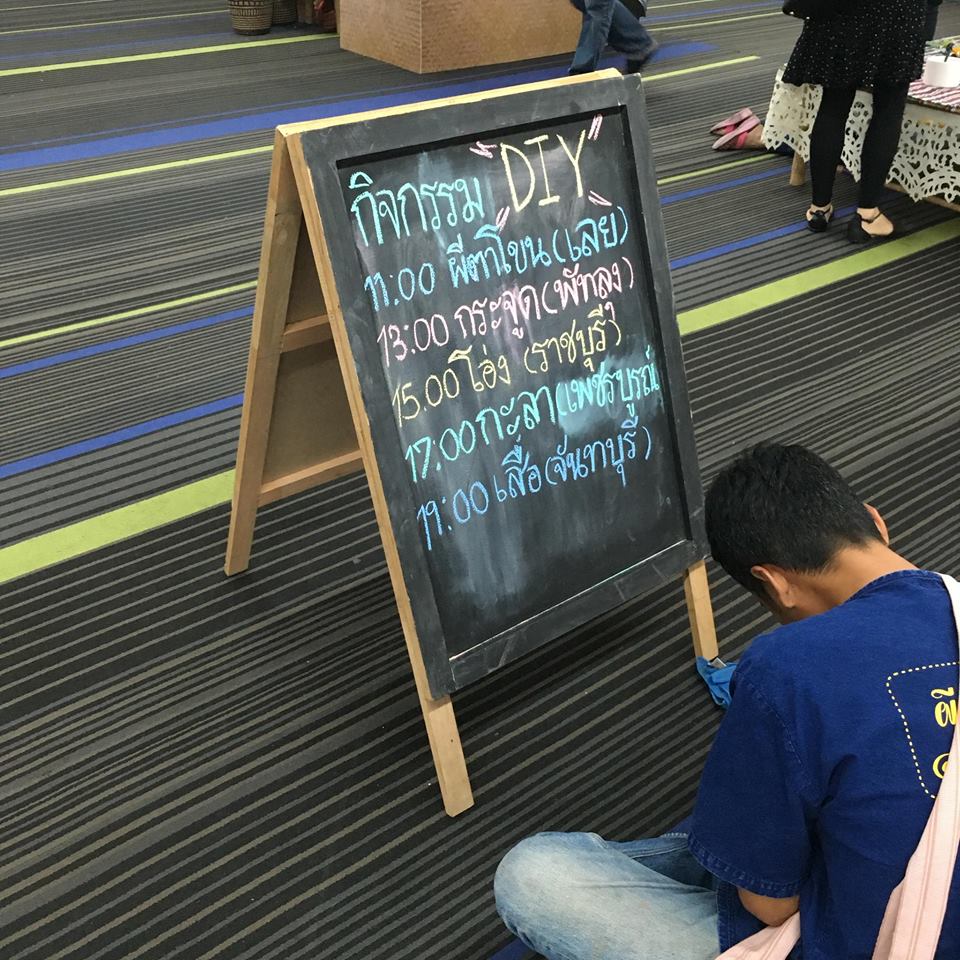 กิจกรรม "DIY"
11:00 ผีตาโขน (เลย)
13:00 กระจูด (พัทลุง)
15.00 โอ่ง (ราชบุรี)
17.00 กะลา (เพชรบูรณ์
19:00 เสื่อ (จันทบุรี)